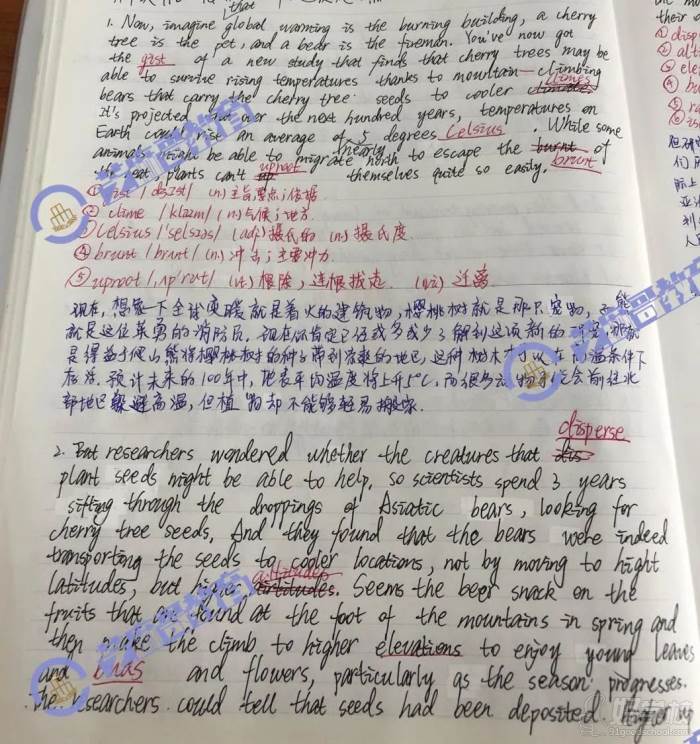 that
1. Now, imagine global warming is the burning building, a cherry
tree is the pet, and a bear is the fireman. You've now got
the gist of a new study that finds that cherry trees may be
able to survive rising temperatures thanks to mountain-climbing
bears that carry the cherry tree seeds to cooler climes
It's projected over the next hundred years, temperatures on
Earth could rise an average of 5 degrees Celsius. While some
animals might be able to migrate north to escape the brunt of
the heat, plants can't uproot themselves quite so easily.
① gist /dʒɪst/ (n) 主旨;要点;依据
② clime /klaɪm/ (n) 气候;地方
③ Celsius /'selsɪəs/ (adj) 摄氏的 (n) 摄氏度
④ brunt /brʌnt/ (n) 冲击;主要冲力
⑤ uproot /ˌʌp'rut/ (vt) 根除,连根拔走 (vi) 迁离
现在,想象一下全球变暖就是着火的建筑物,樱桃树就是那只宠物,
就是这位英勇的消防员.现在你肯定已经或多或少了解到这项新的研究
是得益于爬山熊将樱桃树的种子带到凉爽的地区,这种树木才可以在高温条件下
存活.预计未来的100年中,地表平均温度将上升5°C.而很多动物会前往北
部地区躲避高温,但植物却不能够轻易搬家.
disperse
2. But researchers wondered whether the creatures that
plant seeds might be able to help. So scientists spend 3 years
sifting through the droppings of Asiatic bears, looking for
cherry tree seeds. And they found that the bears were indeed
transporting the seeds to cooler locations, not by moving to hight
latitudes, but higher altitudes. Seems the beer snack on the
fruits that are found at the foot of the mountains in spring and
then make the climb to higher elevations to enjoy young leaves
and buas and flowers, particularly as the season progresses.
The researchers could tell that seeds had been deposited higher